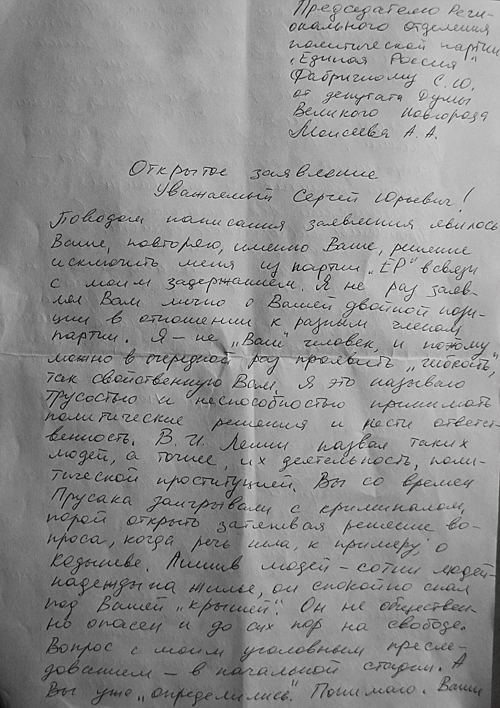 Председателю Реги-
онального отделения
политической партии
„Единая Россия"
Фабричному С.Ю.
от депутата Думы
Великого Новгорода
Моисеева А.А.
Открытое заявление
Уважаемый Сергей Юрьевич!
Поводом написания заявления явилось
Ваше, повторяю, именно Ваше, решение
исключить меня из партии „ЕР" в связи
с моим задержанием. Я не раз заяв-
лял Вам лично о Вашей двойной пози-
ции в отношении к разным членам
партии. Я – не „Ваш" человек, и потому
можно в очередной раз проявить „гибкость",
так свойственную Вам. Я это называю
трусостью и неспособностью принимать
политические решения и нести ответст-
венность. В.И. Ленин назвал таких
людей, а точнее, их деятельность, поли-
тической проституцией. Вы со времен
Прусака заигрывали с криминалом,
порой открыто затягивая решение во-
проса, когда речь шла, к примеру, о
Кадышеве. Лишив людей – сотни людей –
надежды на жилье, он спокойно спал
под Вашей „крышей". Он не обществен-
но опасен и до сих пор на свободе.
Вопрос с моим уголовным пресле-
дованием – в начальной стадии. А
Вы уже „определились". Понимаю. Ваши